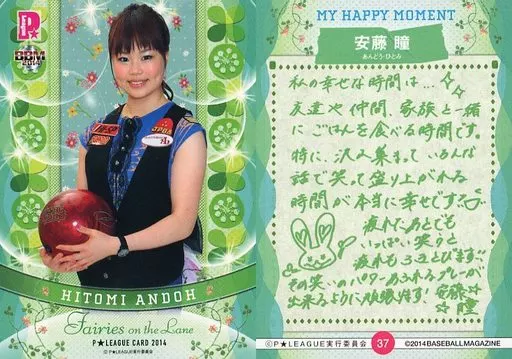 P★
LEAGUE
BBM
2014
JAPAN
HITOMI ANDOH
Fairies on the Lane
P★LEAGUE CARD 2014
©P★LEAGUE実行委員会
MY HAPPY MOMENT
安藤 瞳
あんどう・ひとみ
私の幸せな時間は…
友達や仲間、家族と一緒
にごはんを食べる時間です。
特に、沢山集まっていろんな
話で笑って盛り上がれる
時間が本当に幸せです?
疲れたあとでも
いっぱい笑うと
疲れもふきとびます!!
その笑いのパワーあふれるプレーが
出来るように頑張ります! 安藤
瞳
©P★LEAGUE実行委員会
37
©2014 BASEBALL MAGAZINE